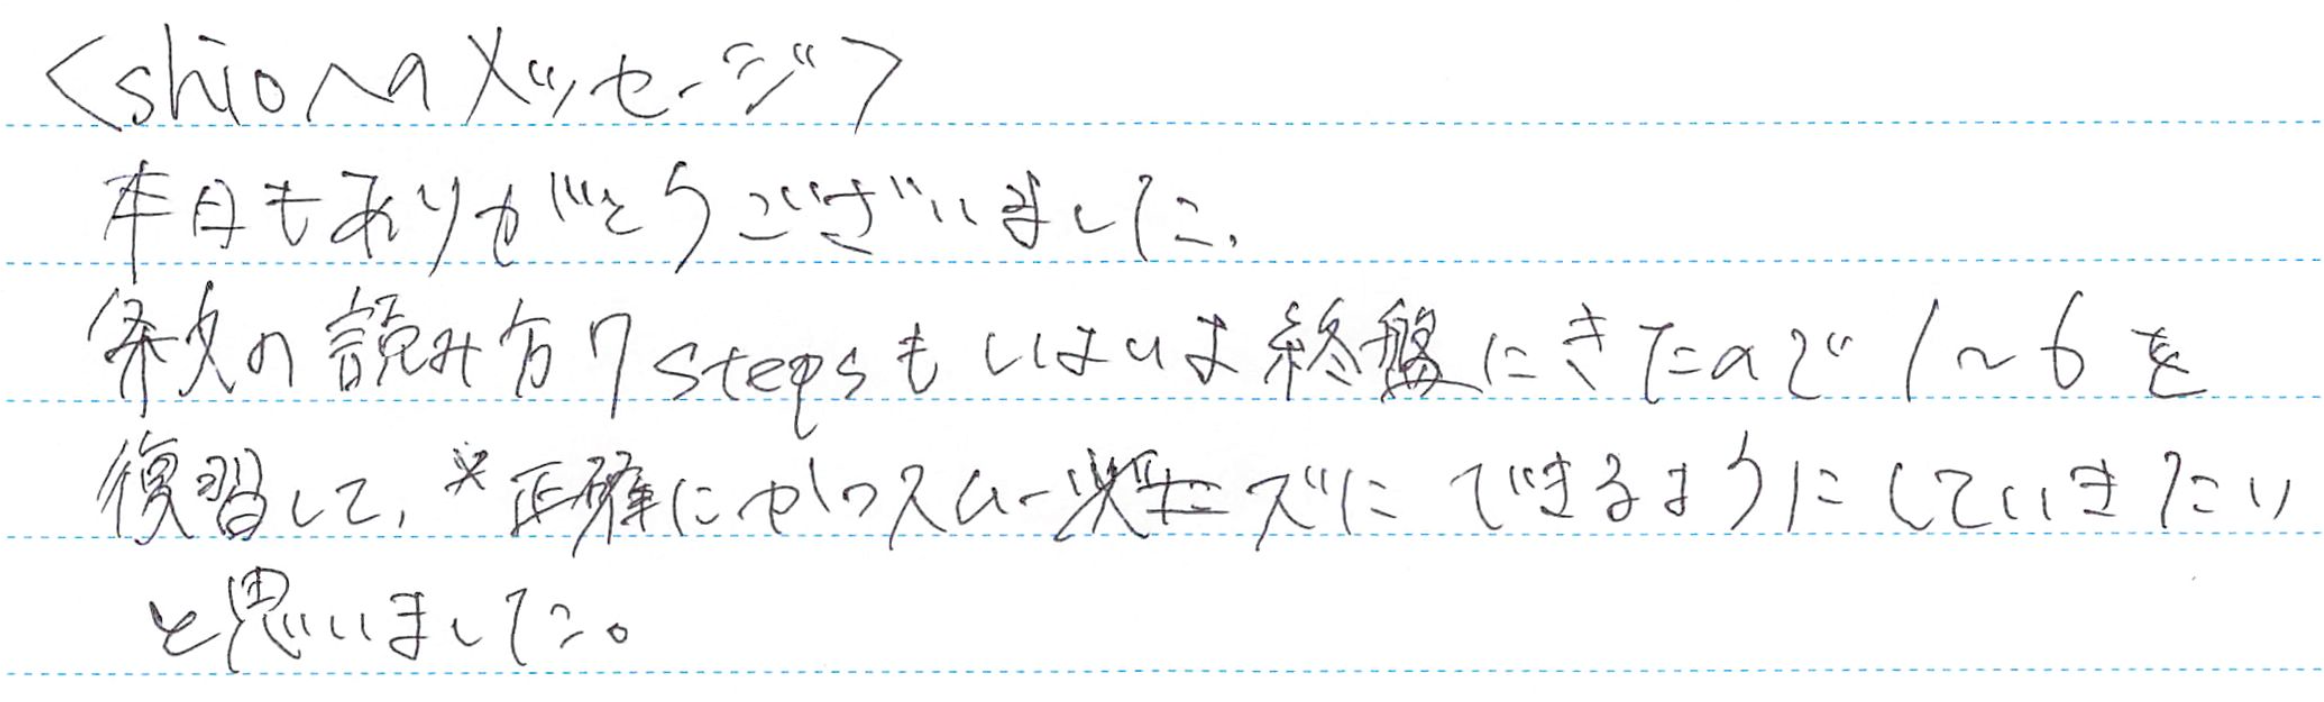 <shioへのメッセージ>
本日もありがとうございました.
条文の読み方7stepsもいよいよ終盤にきたので1~6を
復習して、正確にかつスムーズにできるようにしていきたい
と思いました。